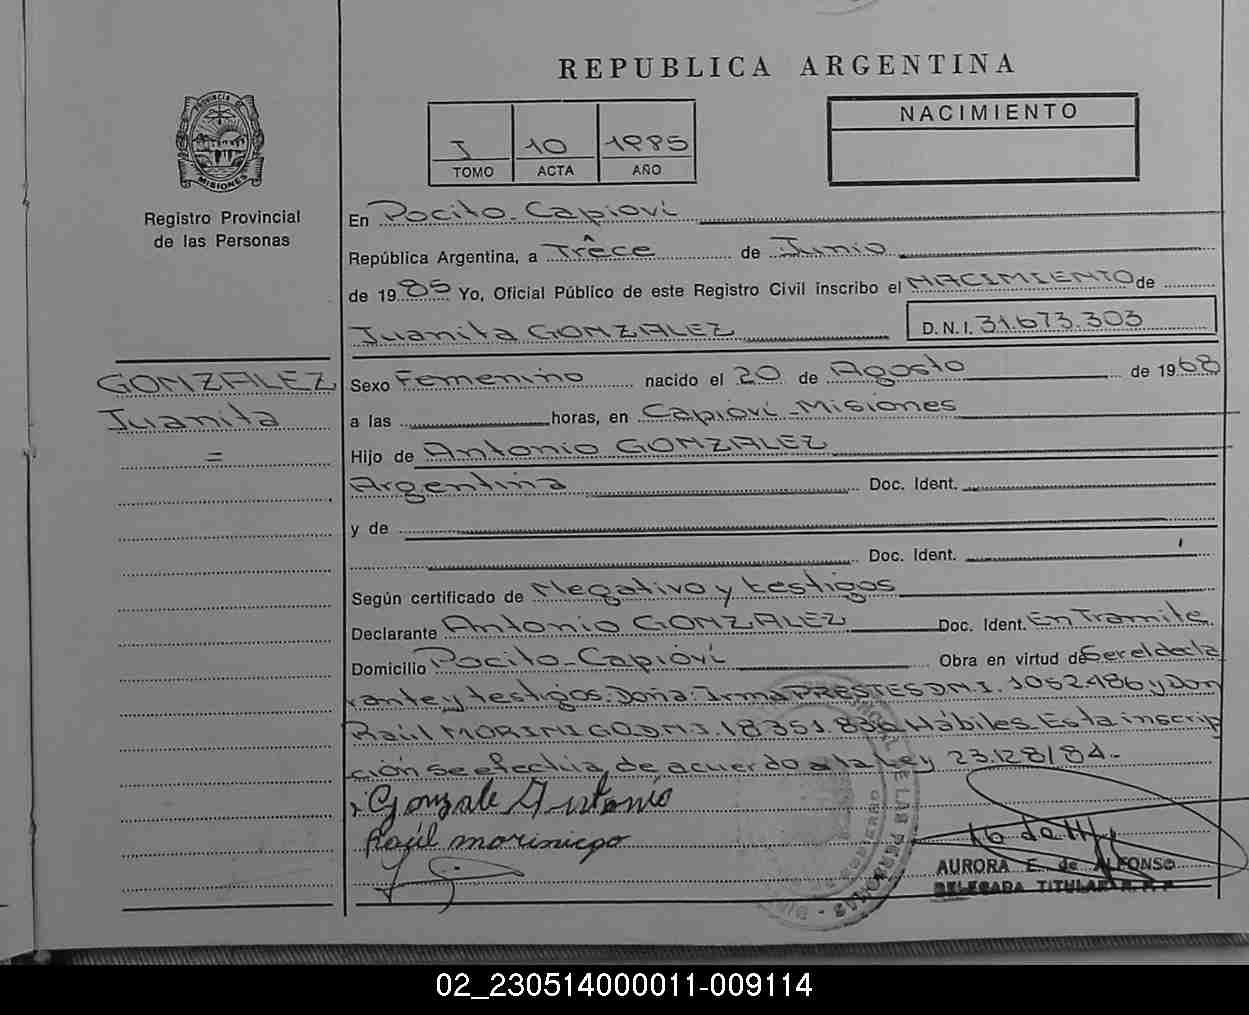 REPUBLICA ARGENTINA
PROVINCIA DE
MISIONES
Registro Provincial
de las Personas
I 10 1985
TOMO ACTA AÑO
NACIMIENTO
En Pocito-Capioví
República Argentina, a Trece de Junio
de 1985 Yo, Oficial Público de este Registro Civil inscribo el NACIMIENTO de
Juanita GONZALEZ D.N.I. 31.673.303
GONZALEZ
Juanita
=
Sexo Femenino nacido el 20 de Agosto de 1968
a las horas, en Capioví-Misiones
Hijo de Antonio GONZALEZ
Argentina Doc. Ident.
y de
Doc. Ident.
Según certificado de Negativo y testigos
Declarante Antonio GONZALEZ Doc. Ident. En Tramite
Domicilio Pocito-Capióví Obra en virtud de Ser el decla
rante y testigos: Doña: Irma PRESTES D.N.I. 1052.486 y Don
Raúl MORINIGO D.N.I. 18.351.836 Hábiles. Esta inscrip
ción se efectúa de acuerdo a la Ley 23.128/84.-
Gonzale Antonio
Raúl moriniego
AURORA E. de ALFONSO
DELEGADA TITULAR R.P.P.
02_230514000011-009114